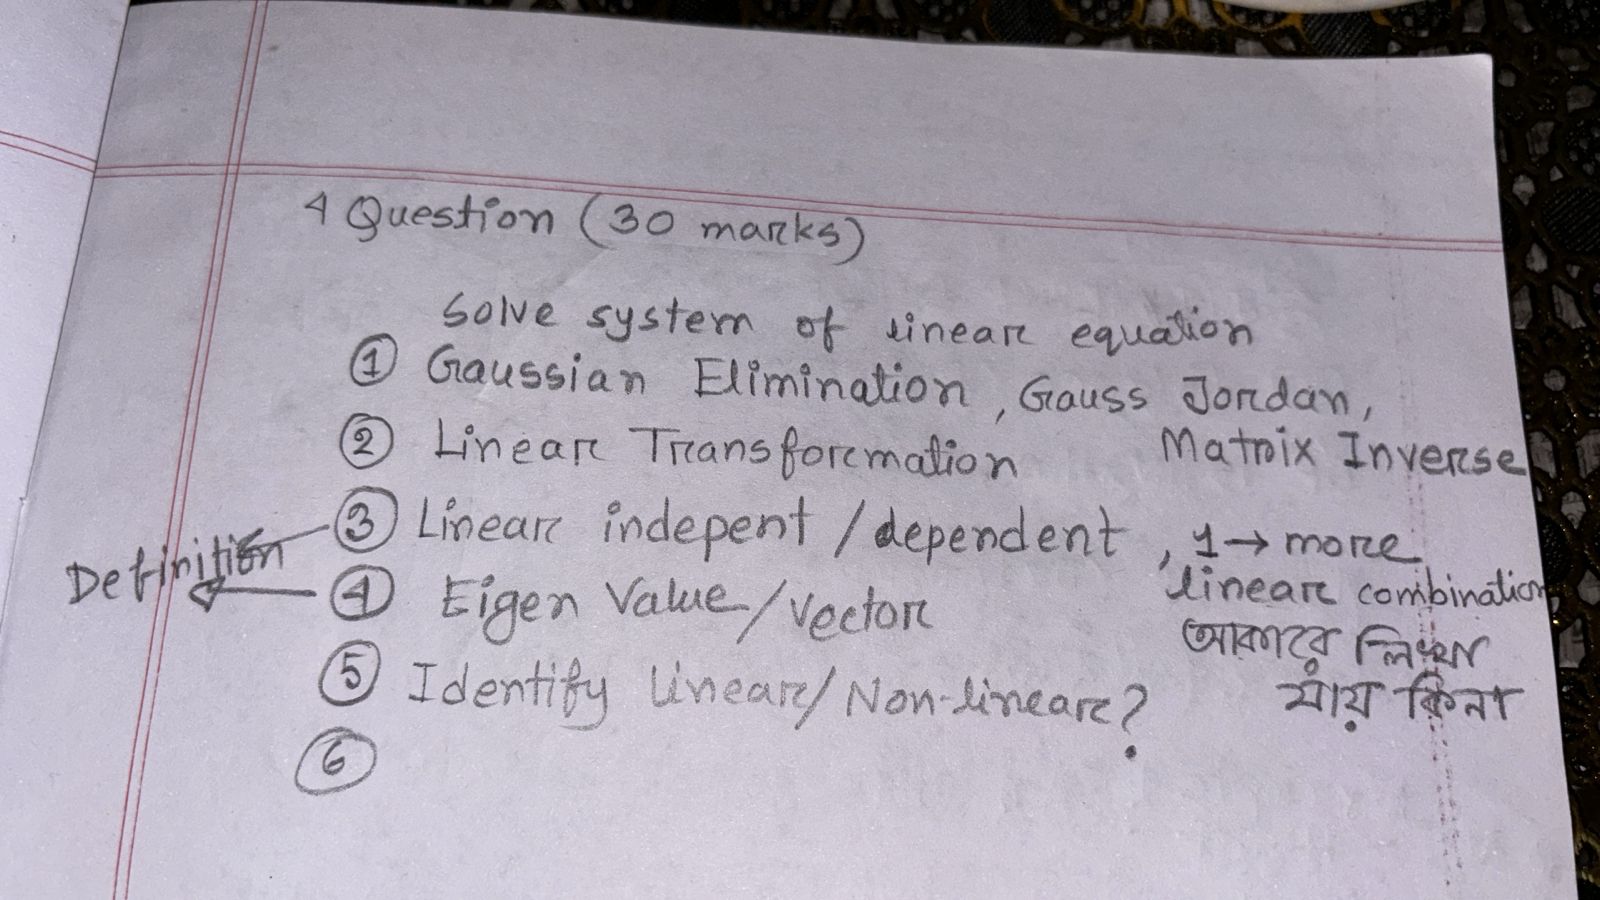 4 Question (30 marks)
Solve system of linear equation
① Gaussian Elimination, Gauss Jordan,
Matrix Inverse
② Linear Transformation
③ Linear indepent / dependent, 1 → more
linear combination
আকারে লিখা
যায় কিনা
Definition
④ Eigen Value / vector
⑤ Identify Linear / Non-linear?
⑥